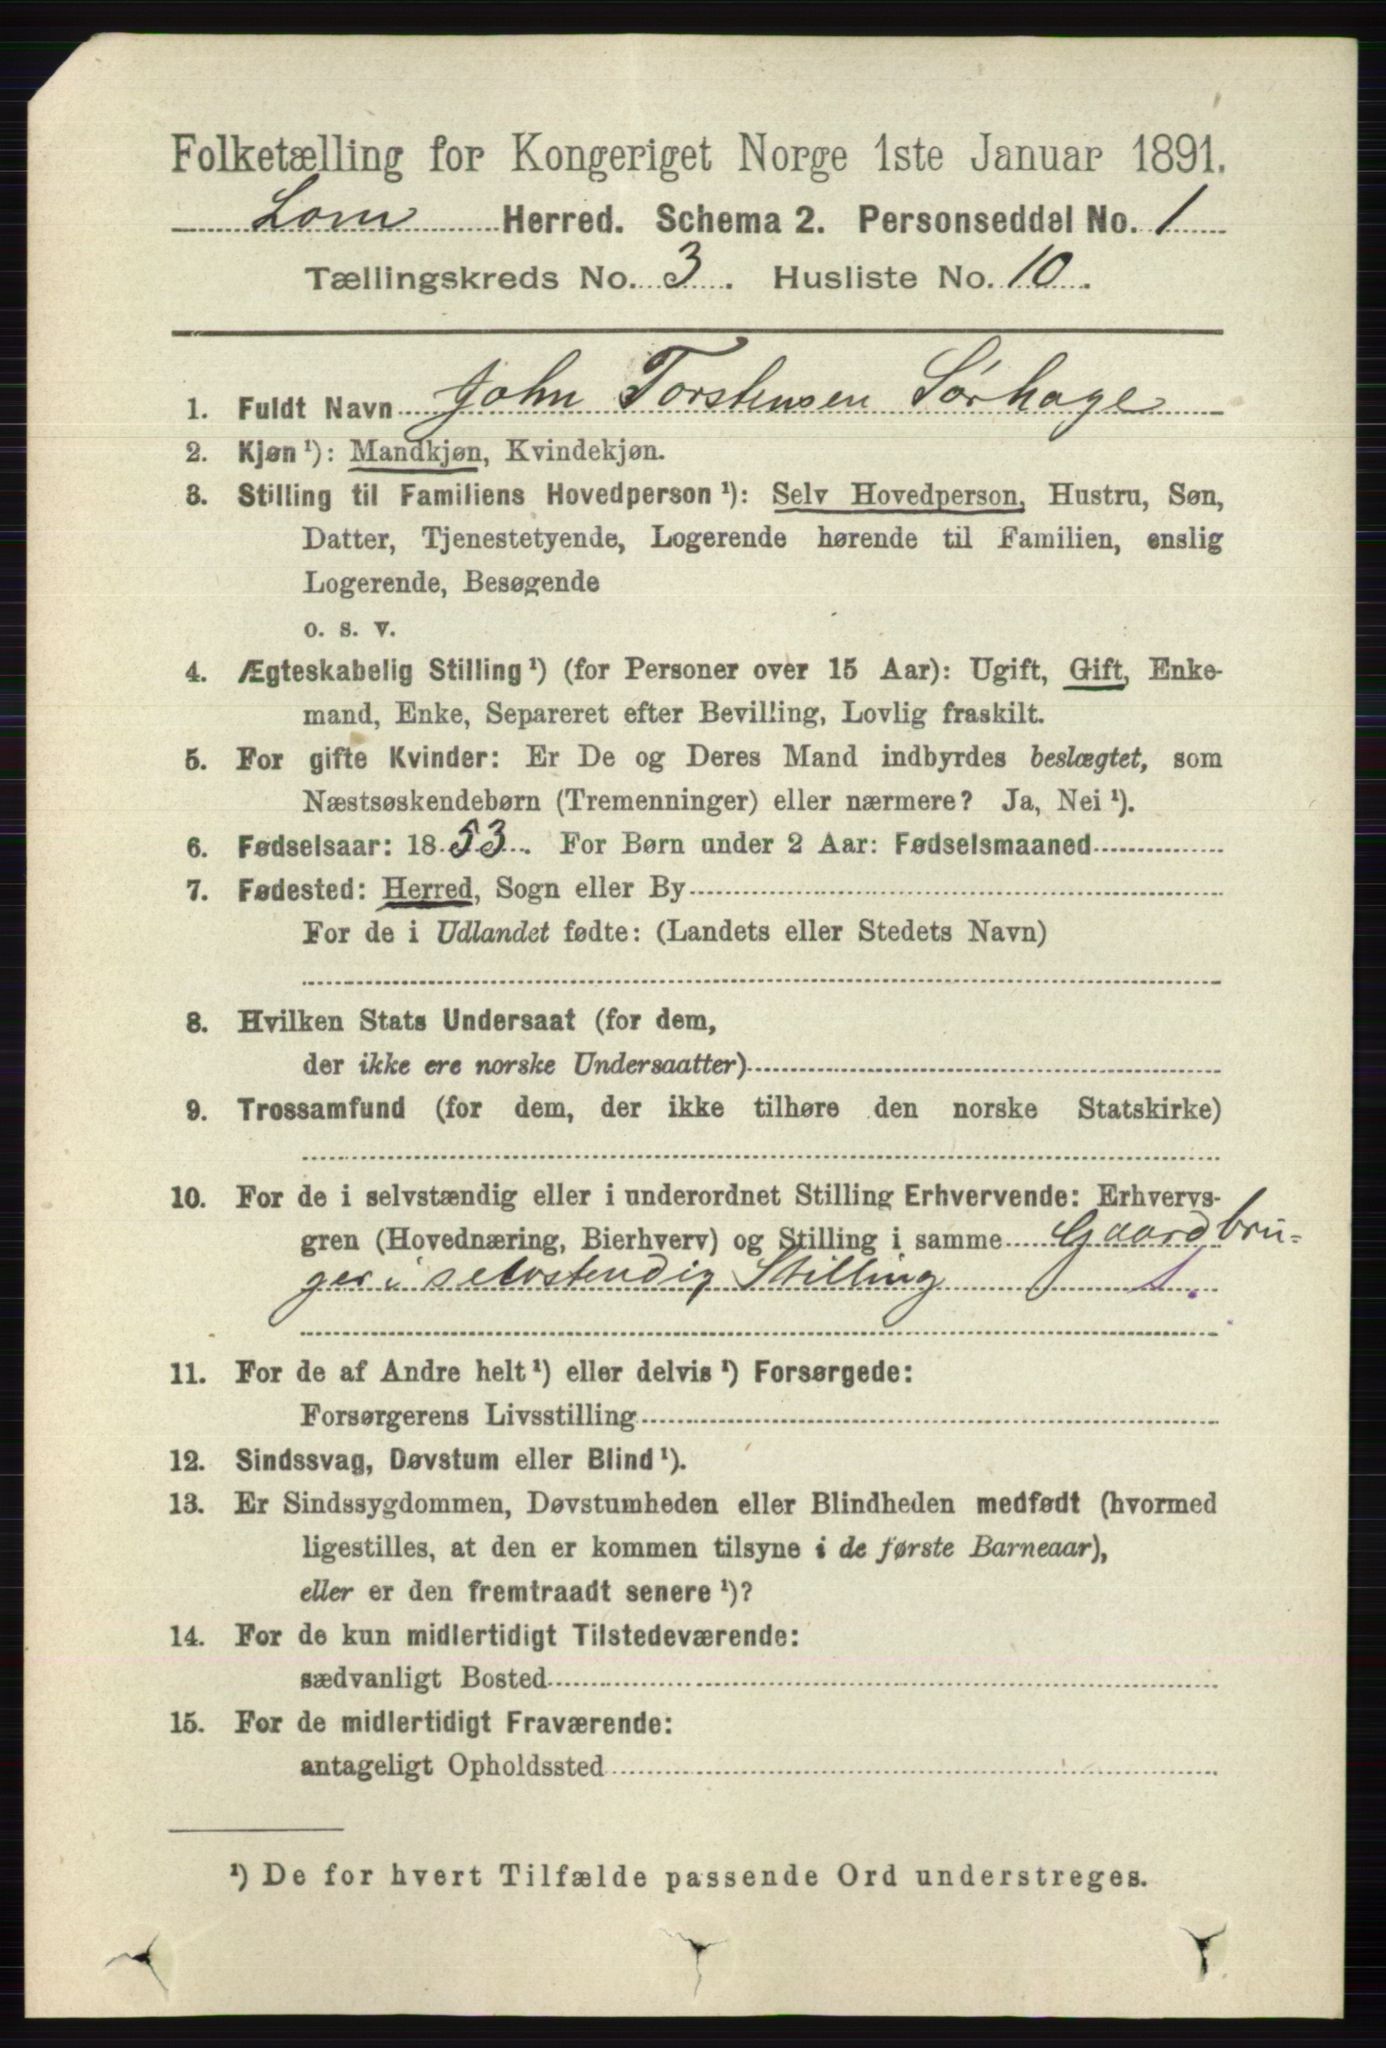 Folketælling for Kongeriget Norge 1ste Januar 1891.
Lom Herred. Schema 2. Personseddel No. 1
Tællingskreds No. 3. Husliste No. 10.
1. Fuldt Navn John Torstensen Sørhage
2. Kjøn¹): Mandkjøn, Kvindekjøn.
3. Stilling til Familiens Hovedperson¹): Selv Hovedperson, Hustru, Søn,
Datter, Tjenestetyende, Logerende hørende til Familien, enslig
Logerende, Besøgende
o. s. v.
4. Ægteskabelig Stilling¹) (for Personer over 15 Aar): Ugift, Gift, Enke-
mand, Enke, Separeret efter Bevilling, Lovlig fraskilt.
5. For gifte Kvinder: Er De og Deres Mand indbyrdes beslægtet, som
Næstsøskendebørn (Tremenninger) eller nærmere? Ja, Nei¹).
6. Fødselsaar: 1853. For Børn under 2 Aar: Fødselsmaaned
7. Fødested: Herred, Sogn eller By
For de i Udlandet fødte: (Landets eller Stedets Navn)
8. Hvilken Stats Undersaat (for dem,
der ikke ere norske Undersaatter)
9. Trossamfund (for dem, der ikke tilhøre den norske Statskirke)
10. For de i selvstændig eller i underordnet Stilling Erhvervende: Erhvervs-
gren (Hovednæring, Bierhverv) og Stilling i samme Gaardbru-
ger i selvstendig Stilling S.
11. For de af Andre helt¹) eller delvis¹) Forsørgede:
Forsørgerens Livsstilling
12. Sindssvag, Døvstum eller Blind¹).
13. Er Sindssygdommen, Døvstumheden eller Blindheden medfødt (hvormed
ligestilles, at den er kommen tilsyne i de første Barneaar),
eller er den fremtraadt senere¹)?
14. For de kun midlertidigt Tilstedeværende:
sædvanligt Bosted
15. For de midlertidigt Fraværende:
antageligt Opholdssted
¹) De for hvert Tilfælde passende Ord understreges.